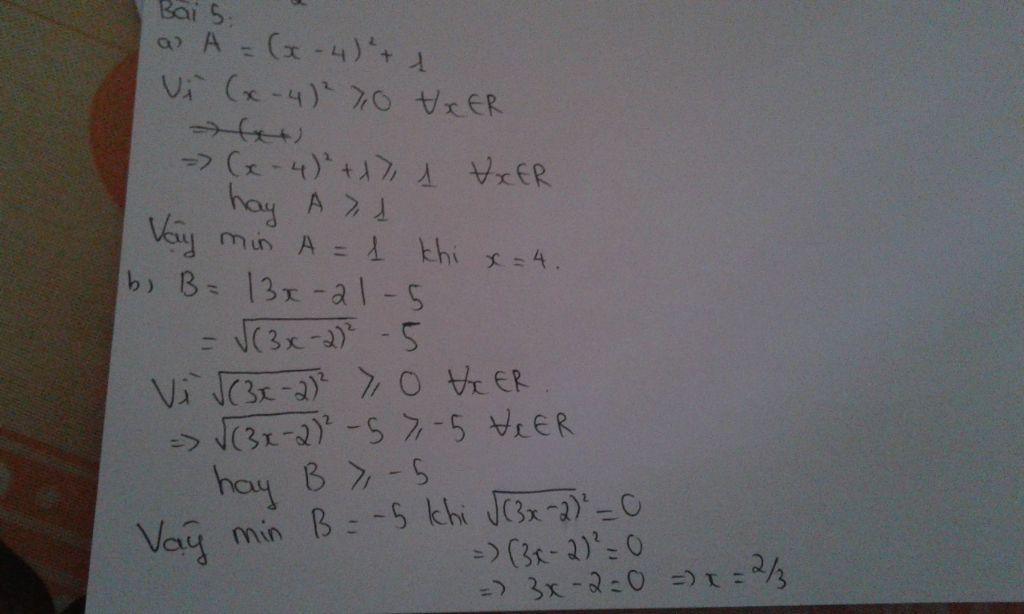 Bài 5:
a) A = (x - 4)² + 1
Vì (x - 4)² ≥ 0 ∀x∈R
=> (x +)
=> (x - 4)² + 1 ≥ 1 ∀x∈R
hay A ≥ 1
Vậy min A = 1 khi x = 4.
b) B = |3x - 2| - 5
= √(3x-2)² - 5
Vì √(3x-2)² ≥ 0 ∀x∈R.
=> √(3x-2)² - 5 ≥ -5 ∀x∈R
hay B ≥ -5
Vậy min B = -5 khi √(3x-2)² = 0
=> (3x-2)² = 0
=> 3x - 2 = 0 => x = 2/3